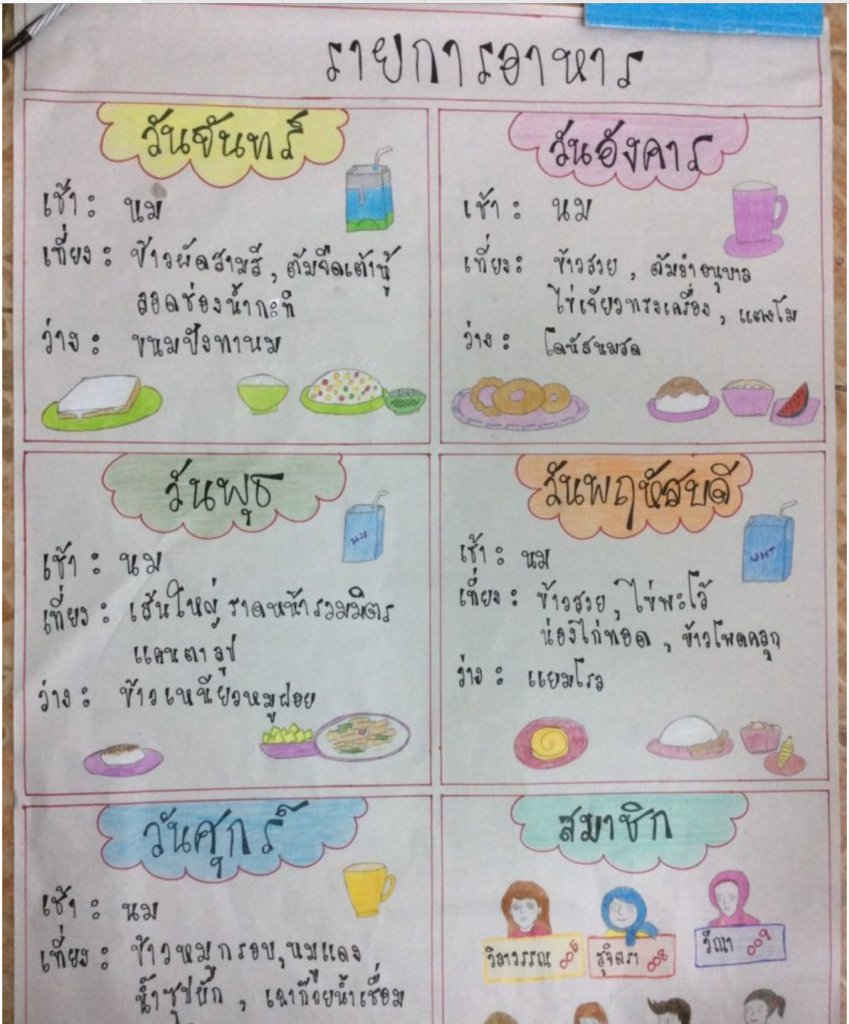 รายการอาหาร
วันจันทร์
เช้า : นม
เที่ยง : ข้าวผัดสามสี , ต้มจืดเต้าหู้
ลอดช่องน้ำกะทิ
ว่าง : ขนมปังทานม
วันอังคาร
เช้า : นม
เที่ยง : ข้าวสวย , ต้มยำอนุบาล
ไข่เจียวทรงเครื่อง , แตงโม
ว่าง : โดนัทนมสด
วันพุธ
เช้า : นม
เที่ยง : เส้นใหญ่ราดหน้ารวมมิตร
แคนตาลูป
ว่าง : ข้าวเหนียวหมูฝอย
วันพฤหัสบดี
เช้า : นม
UHT
เที่ยง : ข้าวสวย , ไข่พะโล้
น่องไก่ทอด , ข้าวโพดคลุก
ว่าง : แยมโรล
วันศุกร์
เช้า : นม
เที่ยง : ข้าวหมูกรอบ , หมูแดง
น้ำซุปผัก , เฉาก๊วยน้ำเชื่อม
สมาชิก
วิลาวรรณ 005
สุจิตรา 008
วีณา 009